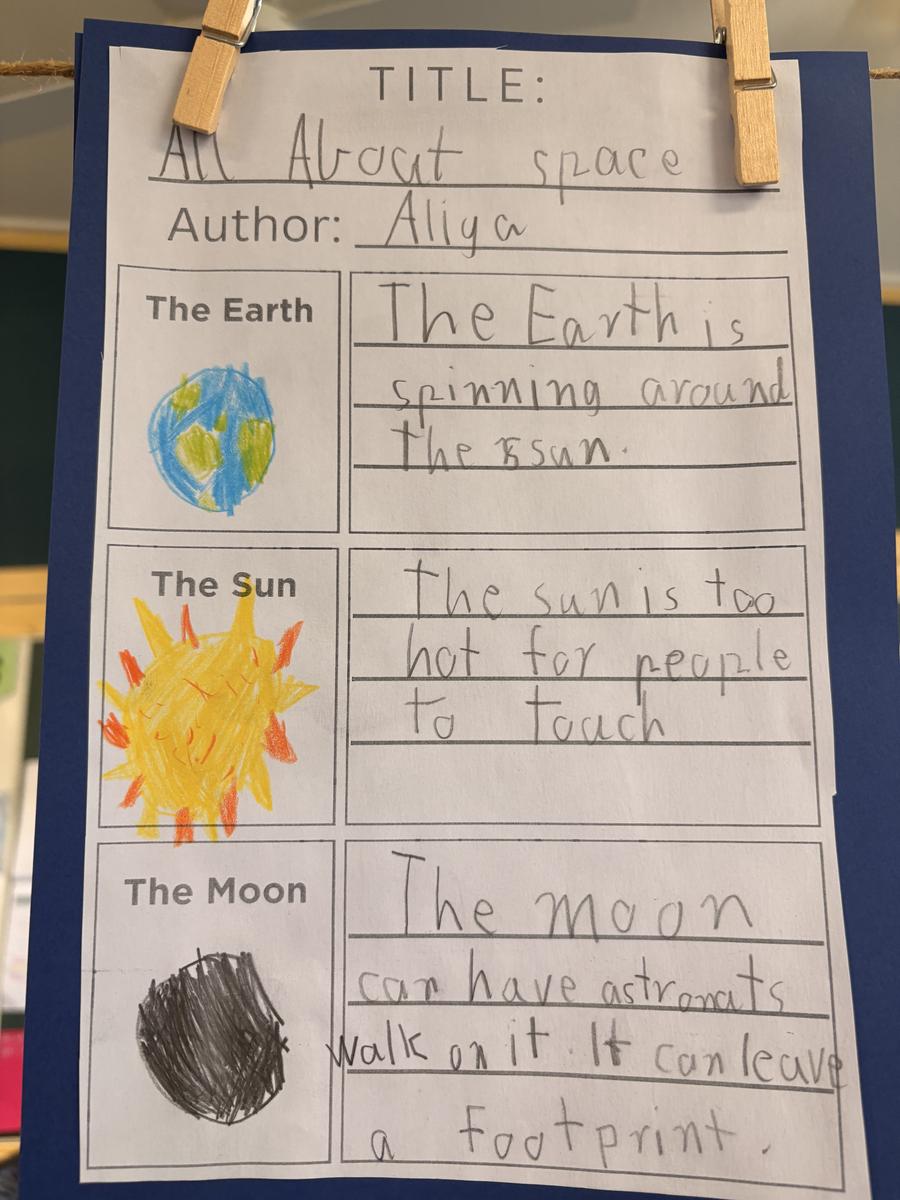 TITLE:
All About space
Author: Aliya
The Earth
The Earth is
spinning around
the sun.
The Sun
the sun is too
hot for people
to touch
The Moon
The moon
can have astronats
walk on it. It can leave
a footprint.